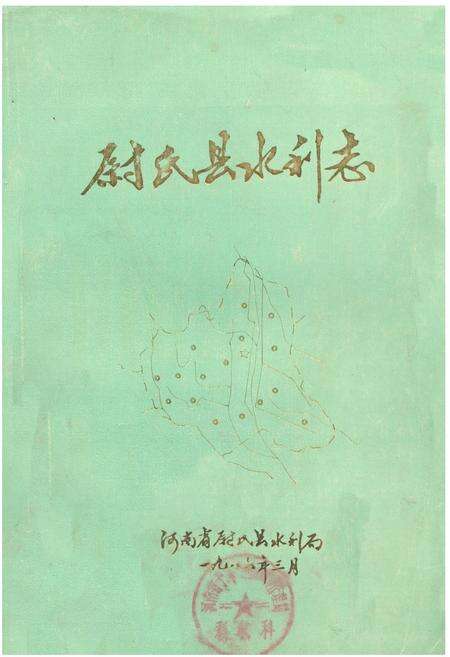 尉氏县水利志
河南省尉氏县水利局
一九八六年三月